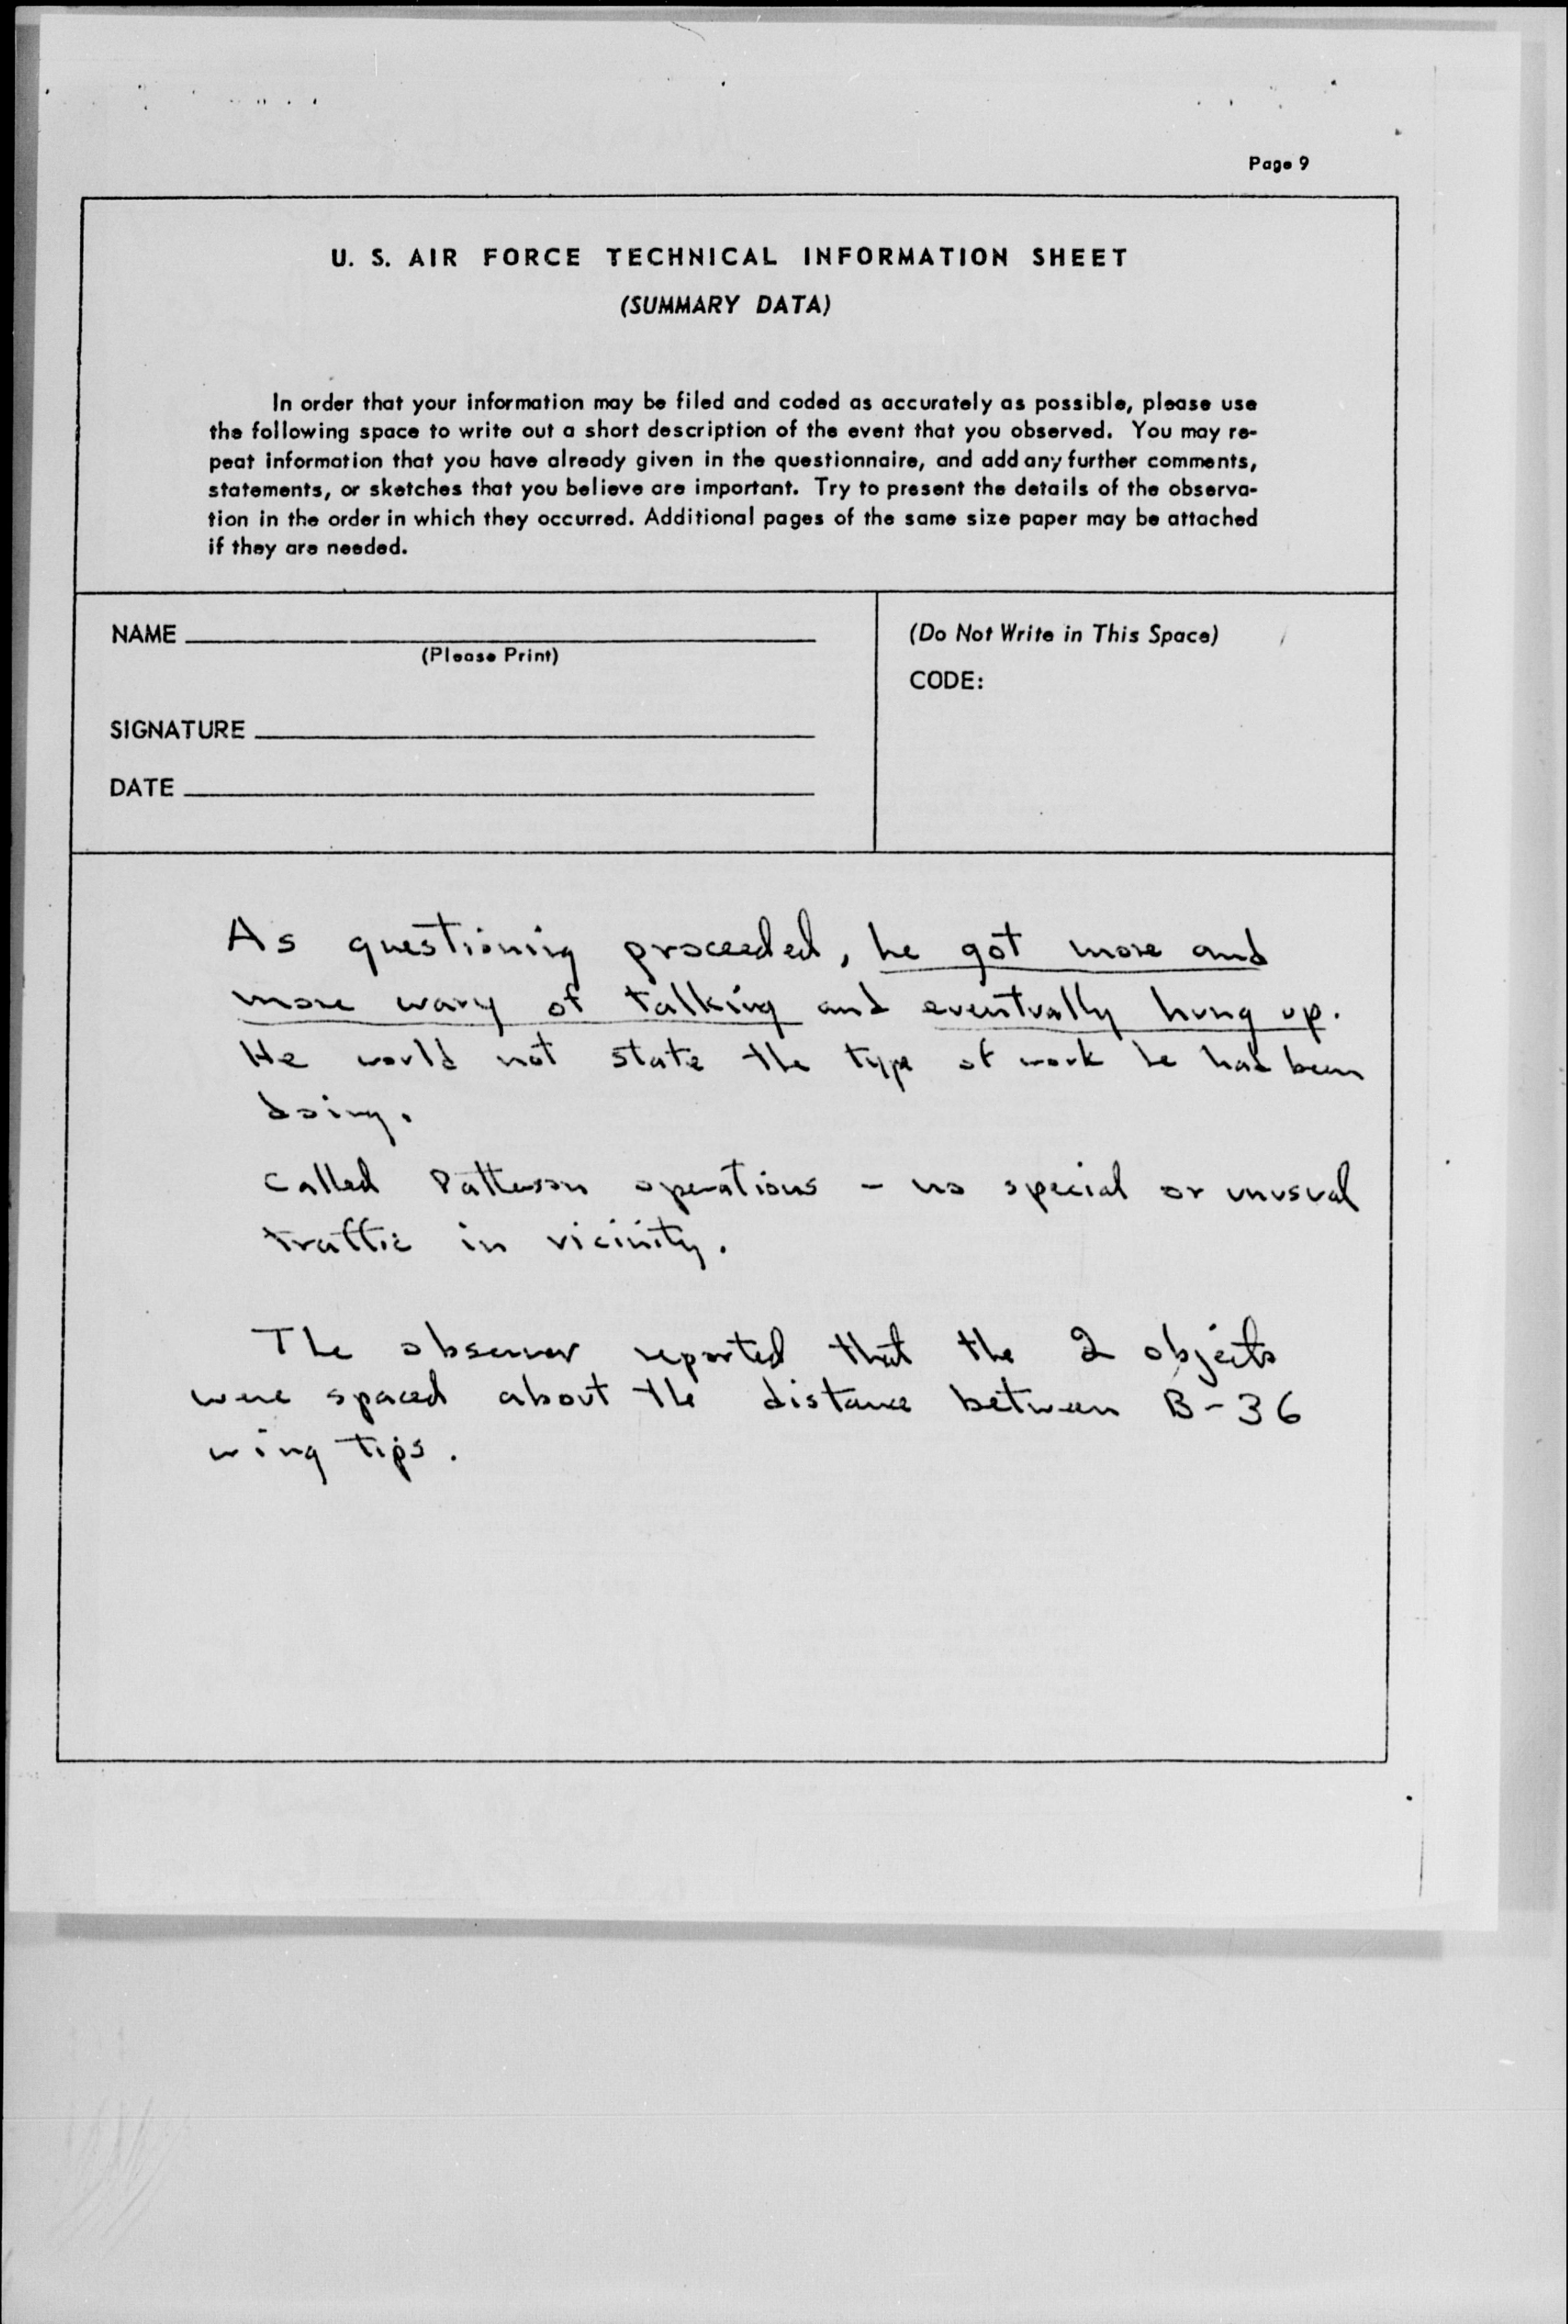 Page 9
U. S. AIR FORCE TECHNICAL INFORMATION SHEET
(SUMMARY DATA)
In order that your information may be filed and coded as accurately as possible, please use
the following space to write out a short description of the event that you observed. You may re-
peat information that you have already given in the questionnaire, and add any further comments,
statements, or sketches that you believe are important. Try to present the details of the observa-
tion in the order in which they occurred. Additional pages of the same size paper may be attached
if they are needed.
NAME
(Please Print)
SIGNATURE
DATE
(Do Not Write in This Space)
CODE:
As questioning proceeded, he got more and
more wary of talking and eventually hung up.
He would not state the type of work he had been
doing.
Called Patterson operations - no special or unusual
traffic in vicinity.
The observer reported that the 2 objects
were spaced about the distance between B-36
wing tips.